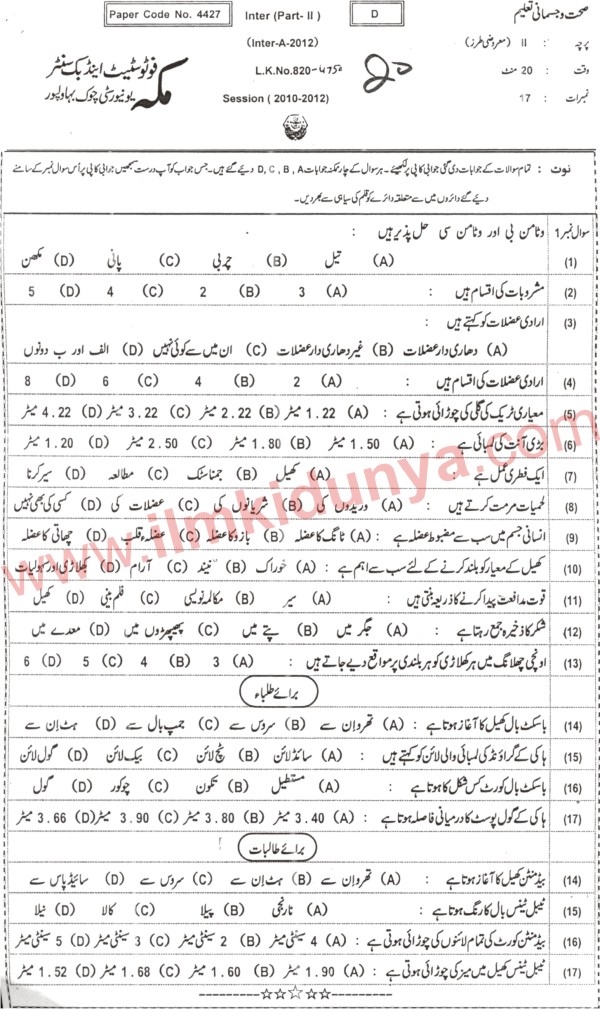 Paper Code No. 4427 Inter (Part- II ) D صحت و جسمانی تعلیم
(Inter-A-2012) پرچہ : II (معروضی طرز)
فوٹوسٹیٹ اینڈ بک سنٹر
مکہ
یونیورسٹی چوک بہاولپور
L.K.No.820-4750 20 وقت : 20 منٹ
Session ( 2010-2012) نمبرات : 17
نوٹ : تمام سوالات کے جوابات دی گئی جوابی کاپی پر لکھیئے۔ ہر سوال کے چار ممکنہ جوابات D, C , B , A دیئے گئے ہیں۔ جس جواب کو آپ درست سمجھیں جوابی کاپی پر اُس سوال نمبر کے سامنے
دیئے گئے دائروں میں سے متعلقہ دائرے کو قلم کی سیاہی سے بھر دیں۔
سوال نمبر 1 وٹامن بی اور وٹامن سی حل پذیر ہیں :
(1) (A) تیل (B) چربی (C) پانی (D) مکھن
(2) مشروبات کی اقسام ہیں : (A) 3 (B) 2 (C) 4 (D) 5
(3) ارادی عضلات کو کہتے ہیں :
(A) دھاری دار عضلات (B) غیر دھاری دار عضلات (C) ان میں سے کوئی نہیں (D) الف اور ب دونوں
(4) ارادی عضلات کی اقسام ہیں : (A) 2 (B) 4 (C) 6 (D) 8
(5) معیاری ٹریک کی گلی کی چوڑائی ہوتی ہے : (A) 1.22 میٹر (B) 2.22 میٹر (C) 3.22 میٹر (D) 4.22 میٹر
(6) بڑی آنت کی لمبائی ہے : (A) 1.50 میٹر (B) 1.80 میٹر (C) 2.50 میٹر (D) 1.20 میٹر
(7) ایک فطری عمل ہے : (A) کھیل (B) جمناسٹک (C) مطالعہ (D) سیر کرنا
(8) لحمیات مرمت کرتے ہیں : (A) وریدوں کی (B) شریانوں کی (C) عضلات کی (D) کسی کی بھی نہیں
(9) انسانی جسم میں سب سے مضبوط عضلہ ہے : (A) ٹانگ کا عضلہ (B) بازو کا عضلہ (C) عضلہ قلب (D) چھاتی کا عضلہ
(10) کھیل کے معیار کو بلند کرنے کے لئے سب سے اہم ہے : (A) خوراک (B) نیند (C) آرام (D) کھلاڑی اور سہولیات
(11) قوت مدافعت پیدا کرنے کا ذریعہ بنتی ہیں : (A) سیر (B) مکالمہ نویسی (C) فلم بینی (D) کھیل
(12) شکر کا ذخیرہ جمع رہتا ہے : (A) جگر میں (B) پتے میں (C) پھیپھڑوں میں (D) معدے میں
(13) اونچی چھلانگ میں ہر کھلاڑی کو ہر بلندی پر مواقع دیے جاتے ہیں : (A) 3 (B) 4 (C) 5 (D) 6
برائے طلباء
(14) باسکٹ بال کھیل کا آغاز ہوتا ہے : (A) تھرو اِن سے (B) سروس سے (C) جمپ بال سے (D) ہٹ اِن سے
(15) ہاکی کے گراؤنڈ کی لمبائی والی لائن کو کہتے ہیں : (A) سائڈ لائن (B) پنچ لائن (C) بیک لائن (D) گول لائن
(16) باسکٹ بال کورٹ کس شکل کا ہوتا ہے : (A) مستطیل (B) تکون (C) چوکور (D) گول
(17) ہاکی کے گول پوسٹ کا درمیانی فاصلہ ہوتا ہے : (A) 3.40 میٹر (B) 3.80 میٹر (C) 3.90 میٹر (D) 3.66 میٹر
برائے طالبات
(14) بیڈمنٹن کھیل کا آغاز ہوتا ہے : (A) تھرو اِن سے (B) ہٹ اِن سے (C) سروس سے (D) سائیڈ پاس سے
(15) ٹیبل ٹینس بال کا رنگ ہوتا ہے : (A) نارنجی (B) پیلا (C) کالا (D) نیلا
(16) بیڈمنٹن کورٹ کی تمام لائنوں کی چوڑائی ہوتی ہے : (A) 4 سینٹی میٹر (B) 2 سینٹی میٹر (C) 3 سینٹی میٹر (D) 5 سینٹی میٹر
(17) ٹیبل ٹینس کھیل میں میز کی چوڑائی ہوتی ہے : (A) 1.90 میٹر (B) 1.60 میٹر (C) 1.68 میٹر (D) 1.52 میٹر
www.ilmkidunya.com